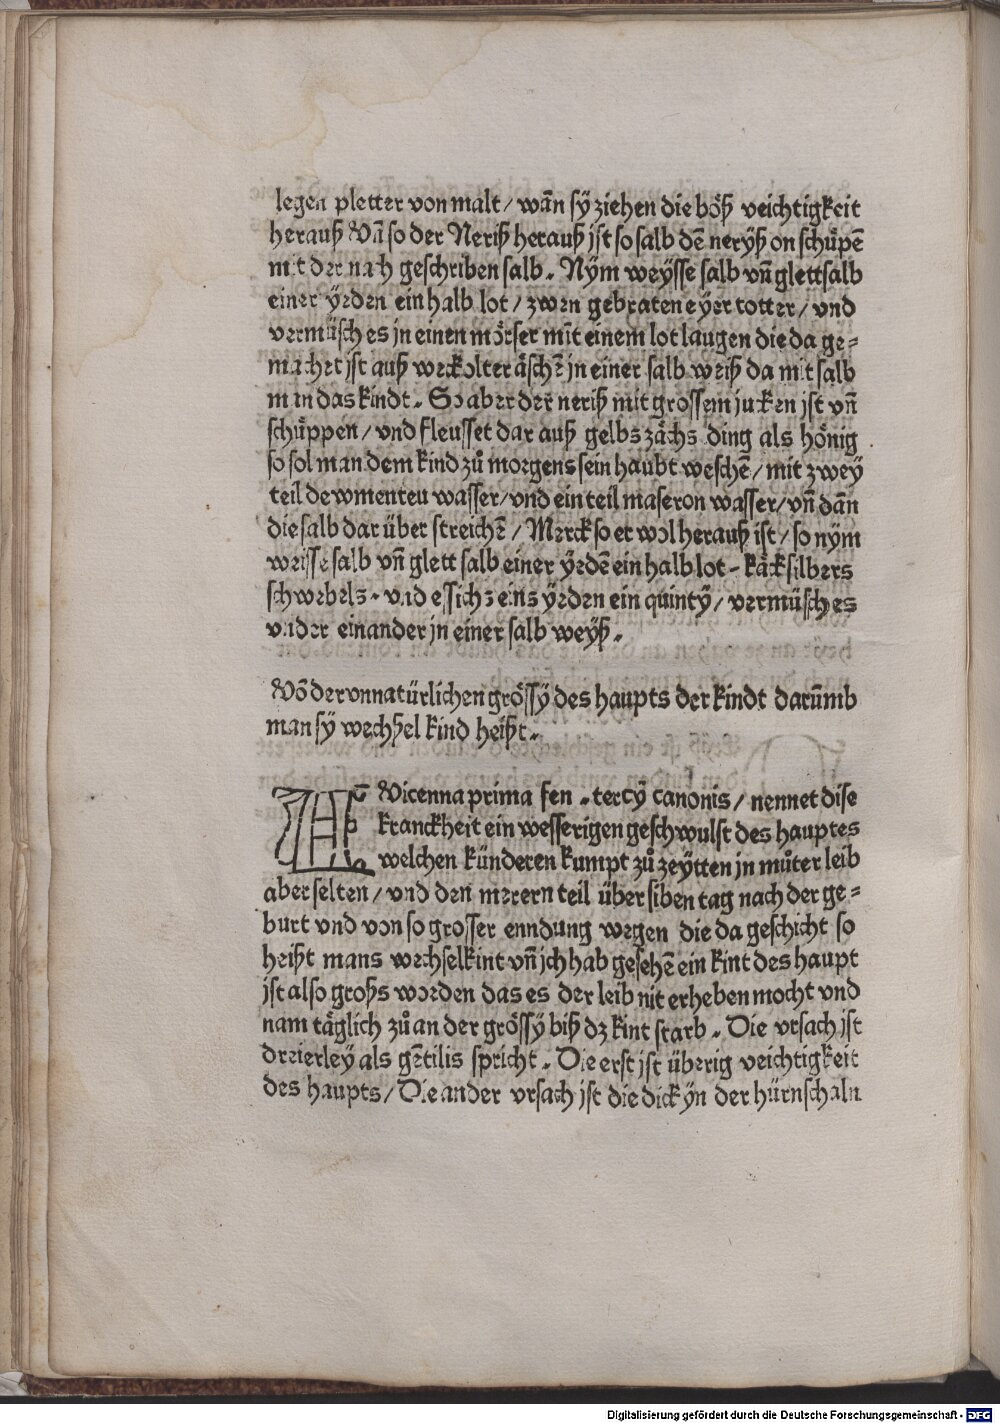 legen pletter von malt / wañ sÿ ziehen die böß veichtigkeit
herauß Vñ so der Neriß herauß jst so salb dẽ nerÿß on schüpẽ
mit der nach geschriben salb . Nÿm weÿsse salb vñ glettsalb
einer ÿeden ein halb lot / zwen gebraten eyer totter / vnd
vermüsch es jn einen mörser mit einem lot laugen die da ge-
machet jst auß weckolter äschẽ jn einer salb weiß da mit salb
man das kindt . So aber der neriß mit grossem jucken jst vñ
schüppen / vnd fleusset dar auß gelbs zächs ding als hönig
so sol man dem kind zů morgens sein haubt weschẽ / mit zwey
teil dewmenteu wasser / vnd ein teil maseron wasser / vñ dañ
die salb dar über streichẽ / Merck so er wol herauß ist / so nÿm
weisse salb vñ glett salb einer ÿedẽ ein halb lot - käcksilbers
schwebels . vnd essichs eins ÿeden ein quintÿ / vermüsch es
vnder einander jn einer salb weÿß .
Võ der vnnatürlichen grössÿ des haupts der kindt darũmb
man sÿ wechßel kind heißt .
AVicenna prima fen . tercÿ canonis / nennet dise
kranckheit ein wesserigen geschwulst des hauptes
welchen künderen kumpt zů zeÿtten jn můter leib
aber selten / vnd den merern teil über siben tag nach der ge-
burt vnd von so grosser enndung wegen die da geschicht so
heißt mans wechselkint vñ jch hab gesehẽ ein kint des haupt
jst also groß worden das es der leib nit erheben mocht vnd
nam täglich zů an der grössÿ biß dz kint starb . Die vrsach jst
dreierleÿ als gẽtilis spricht . Die erst jst überig veichtigkeit
des haupts / Die ander vrsach jst die dickÿn der hürnschaln
Digitalisierung gefördert durch die Deutsche Forschungsgemeinschaft - DFG